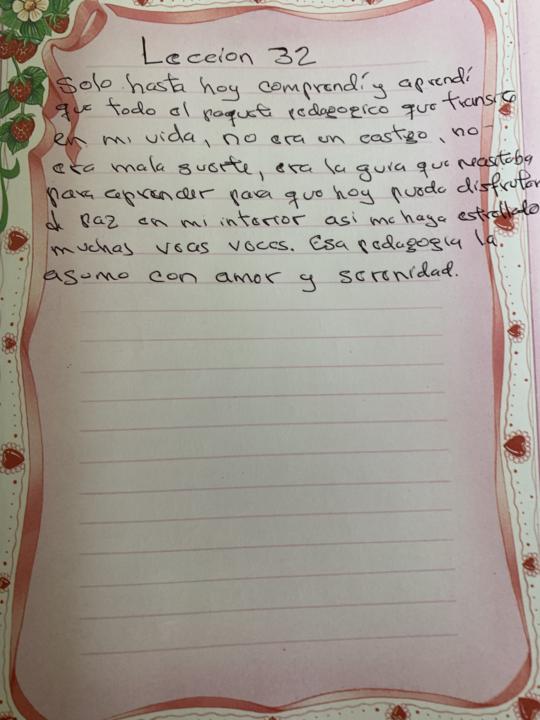 Leccion 32
Solo hasta hoy comprendí y aprendí
que todo el paquete pedagogico que transito
en mi vida, no era un castgo, no
era mala suerte, era la guia que necesitaba
para aprender para que hoy pueda disfrutar
d paz en mi interior asi me haya estrellado
muchas veces voces. Esa pedagogia la
asumo con amor y serenidad.